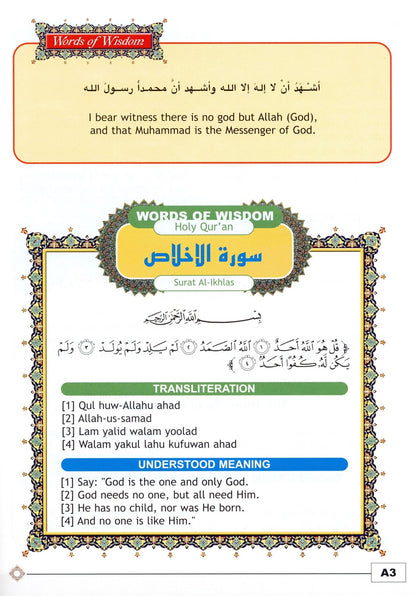 Words of Wisdom
أشـهَدُ أنْ لا إلهَ إلا الله وأشـهد أنَّ محمـداً رسـولَ الله
I bear witness there is no god but Allah (God),
and that Muhammad is the Messenger of God.
WORDS OF WISDOM
Holy Qur'an
سورة الإخلاص
Surat Al-Ikhlas
بِسْمِ اللَّهِ الرَّحْمَٰنِ الرَّحِيمِ
﴿ قُلْ هُوَ اللَّهُ أَحَدٌ ۝١ اللَّهُ الصَّمَدُ ۝٢ لَمْ يَلِدْ وَلَمْ يُولَدْ ۝٣ وَلَمْ
يَكُن لَّهُ كُفُوًا أَحَدٌ ۝٤ ﴾
TRANSLITERATION
[1] Qul huw-Allahu ahad
[2] Allah-us-samad
[3] Lam yalid walam yoolad
[4] Walam yakul lahu kufuwan ahad
UNDERSTOOD MEANING
[1] Say: "God is the one and only God.
[2] God needs no one, but all need Him.
[3] He has no child, nor was He born.
[4] And no one is like Him."
A3